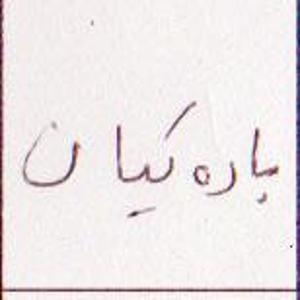 باره کیان